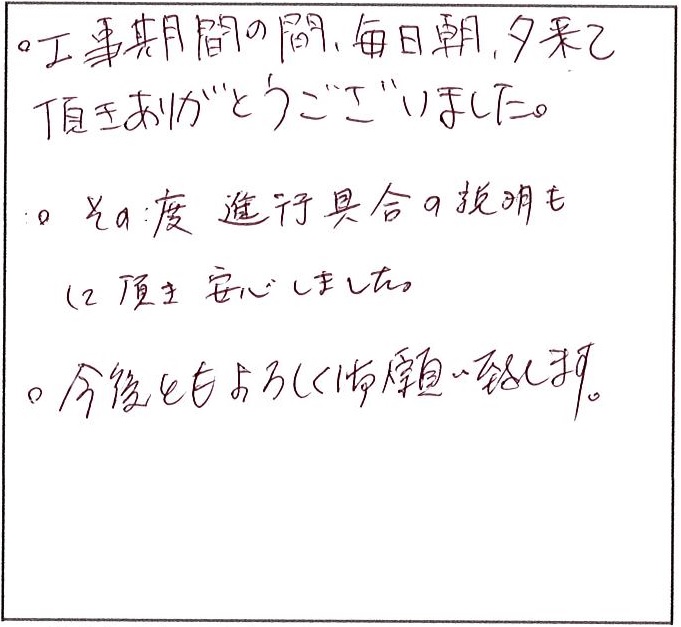 ○工事期間の間、毎日朝、夕来て
頂きありがとうございました。
○ その度 進行具合の説明も
して頂き 安心しました。
○ 今後ともよろしく御願い致します。